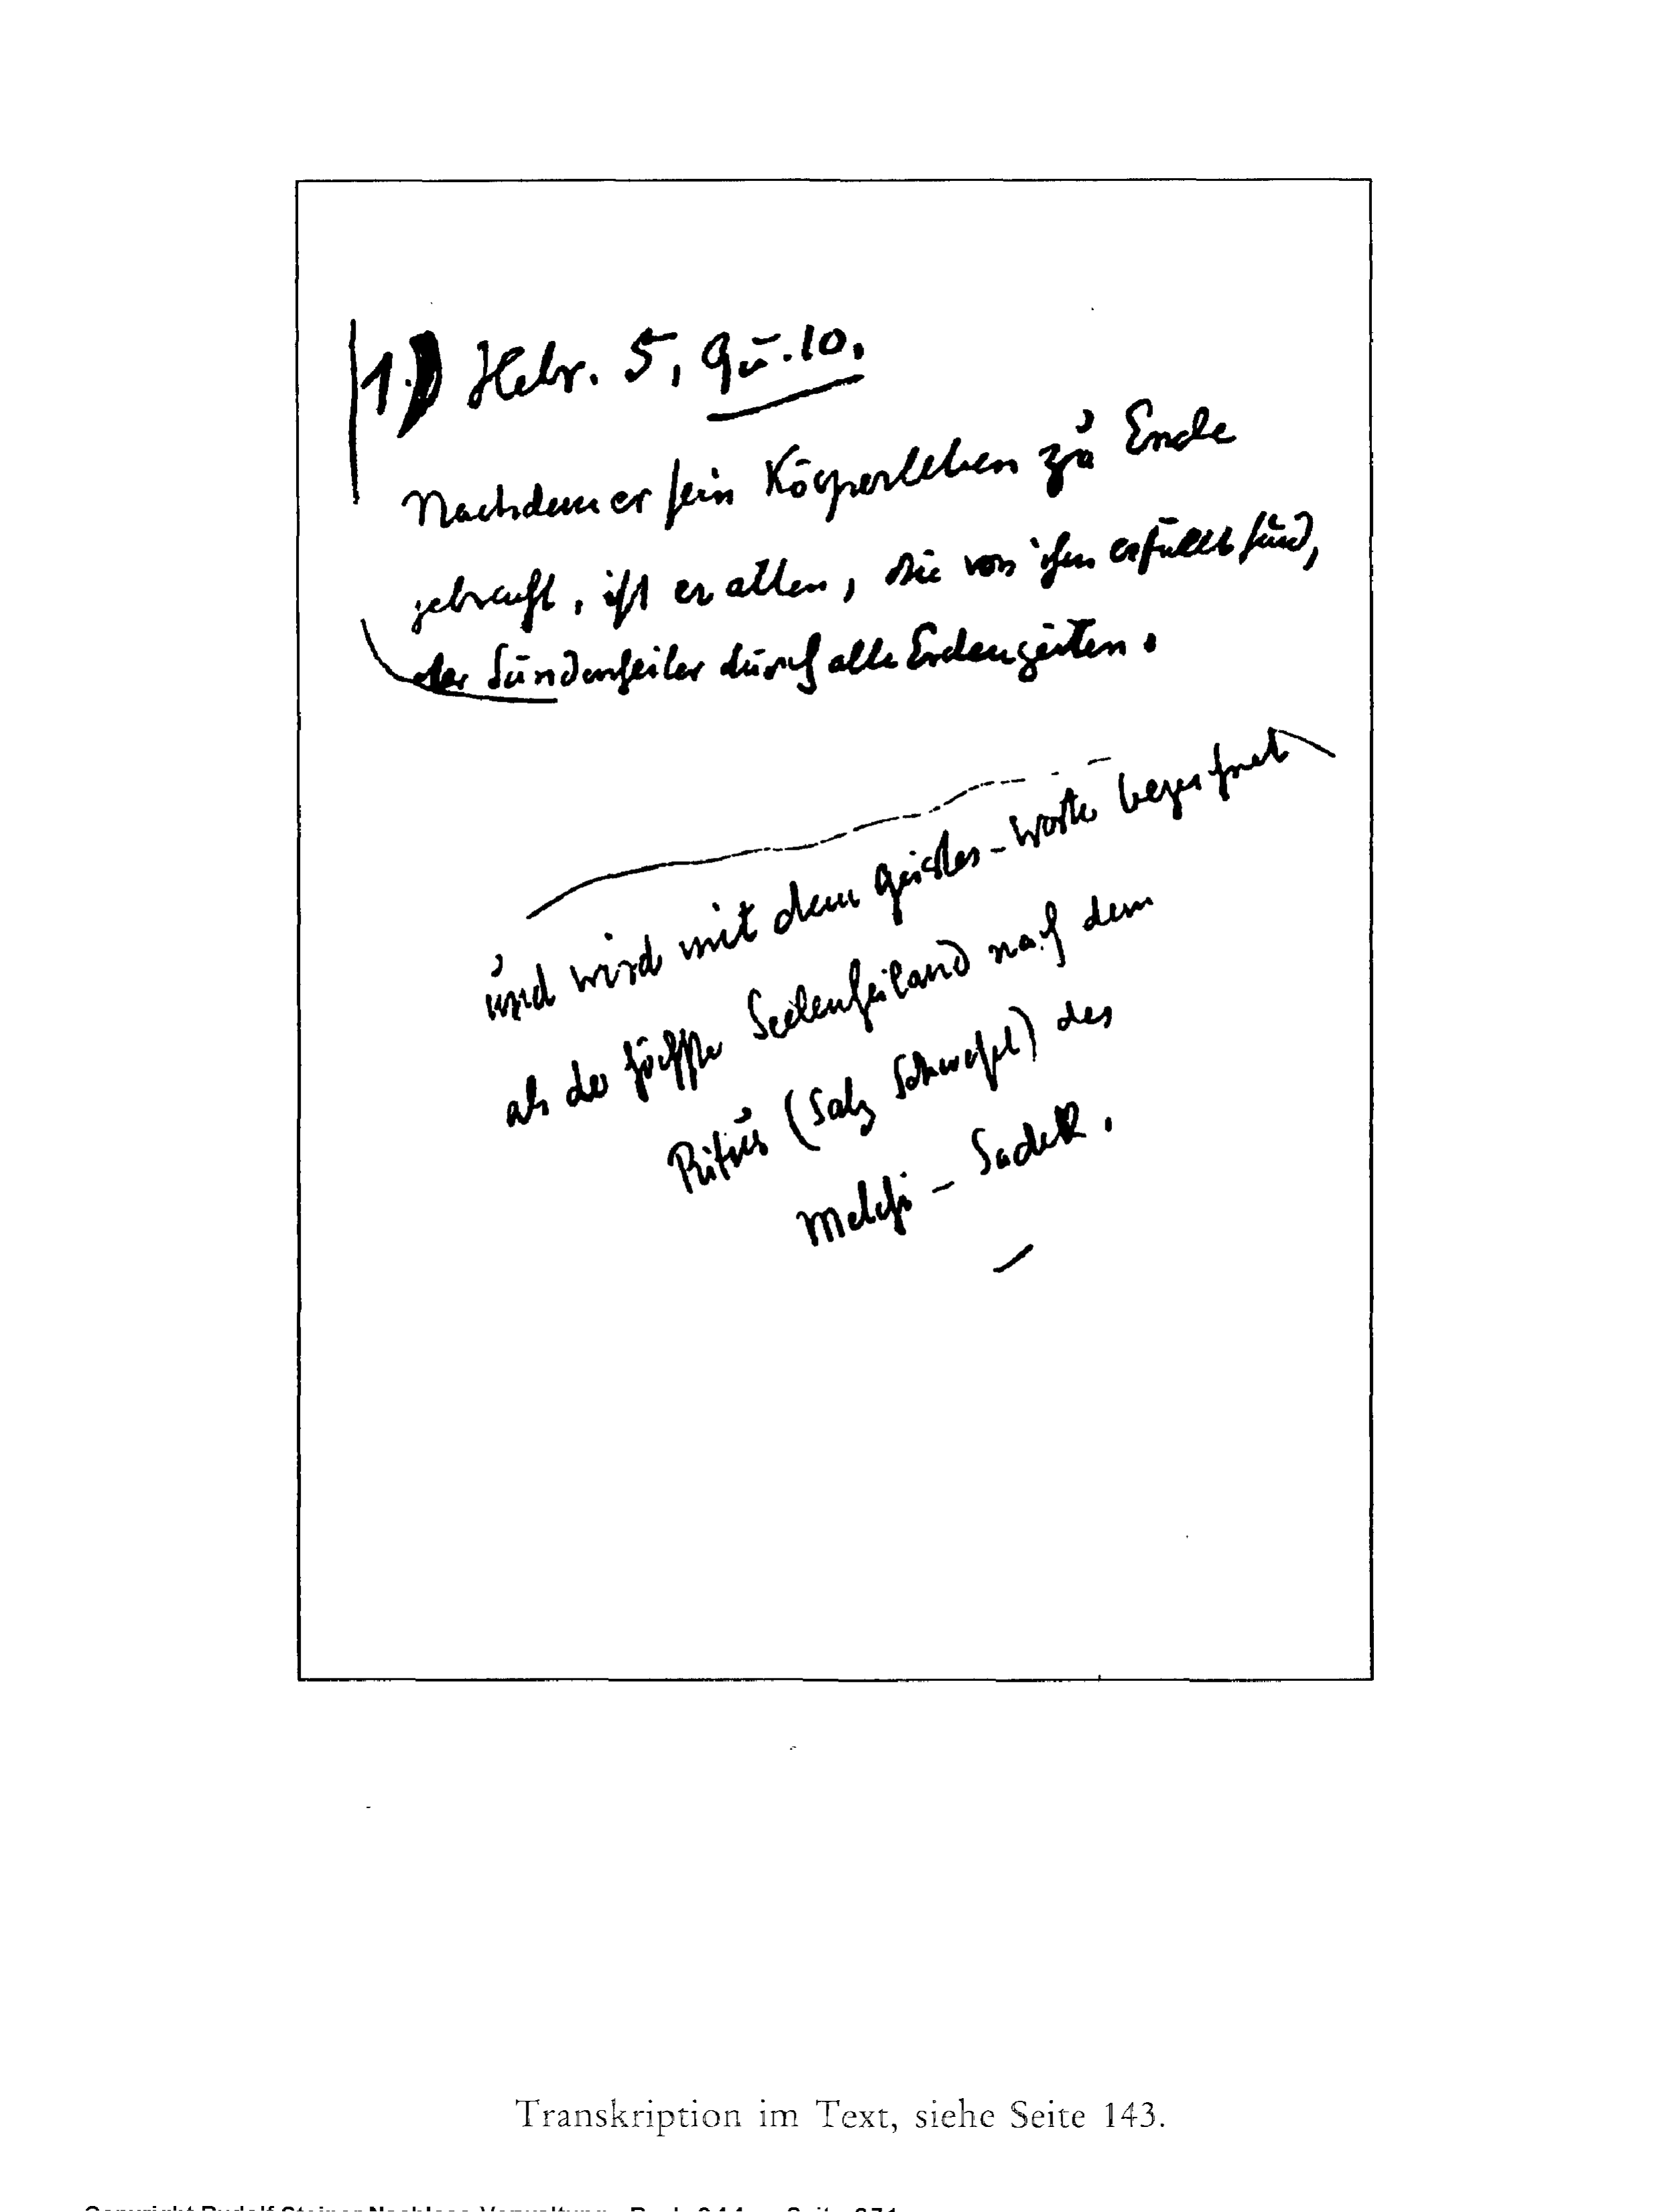 1.) Hebr. 5, 9 u. 10.
Nachdem er sein Körperleben zu Ende
gebracht, ist er allen, die von ihm erfüllt sind,
der Sündenheiler durch alle Erdenzeiten.
und wird mit dem Geistes-Worte bezeichnet
als der höchste Seelenheiland nach dem
Ritus (Salz Schwefel) des
Melchi - Sadek.
Transkription im Text, siehe Seite 143.
Copyright Rudolf Steiner Nachlass-Verwaltung Buch: 344 Seite: 271